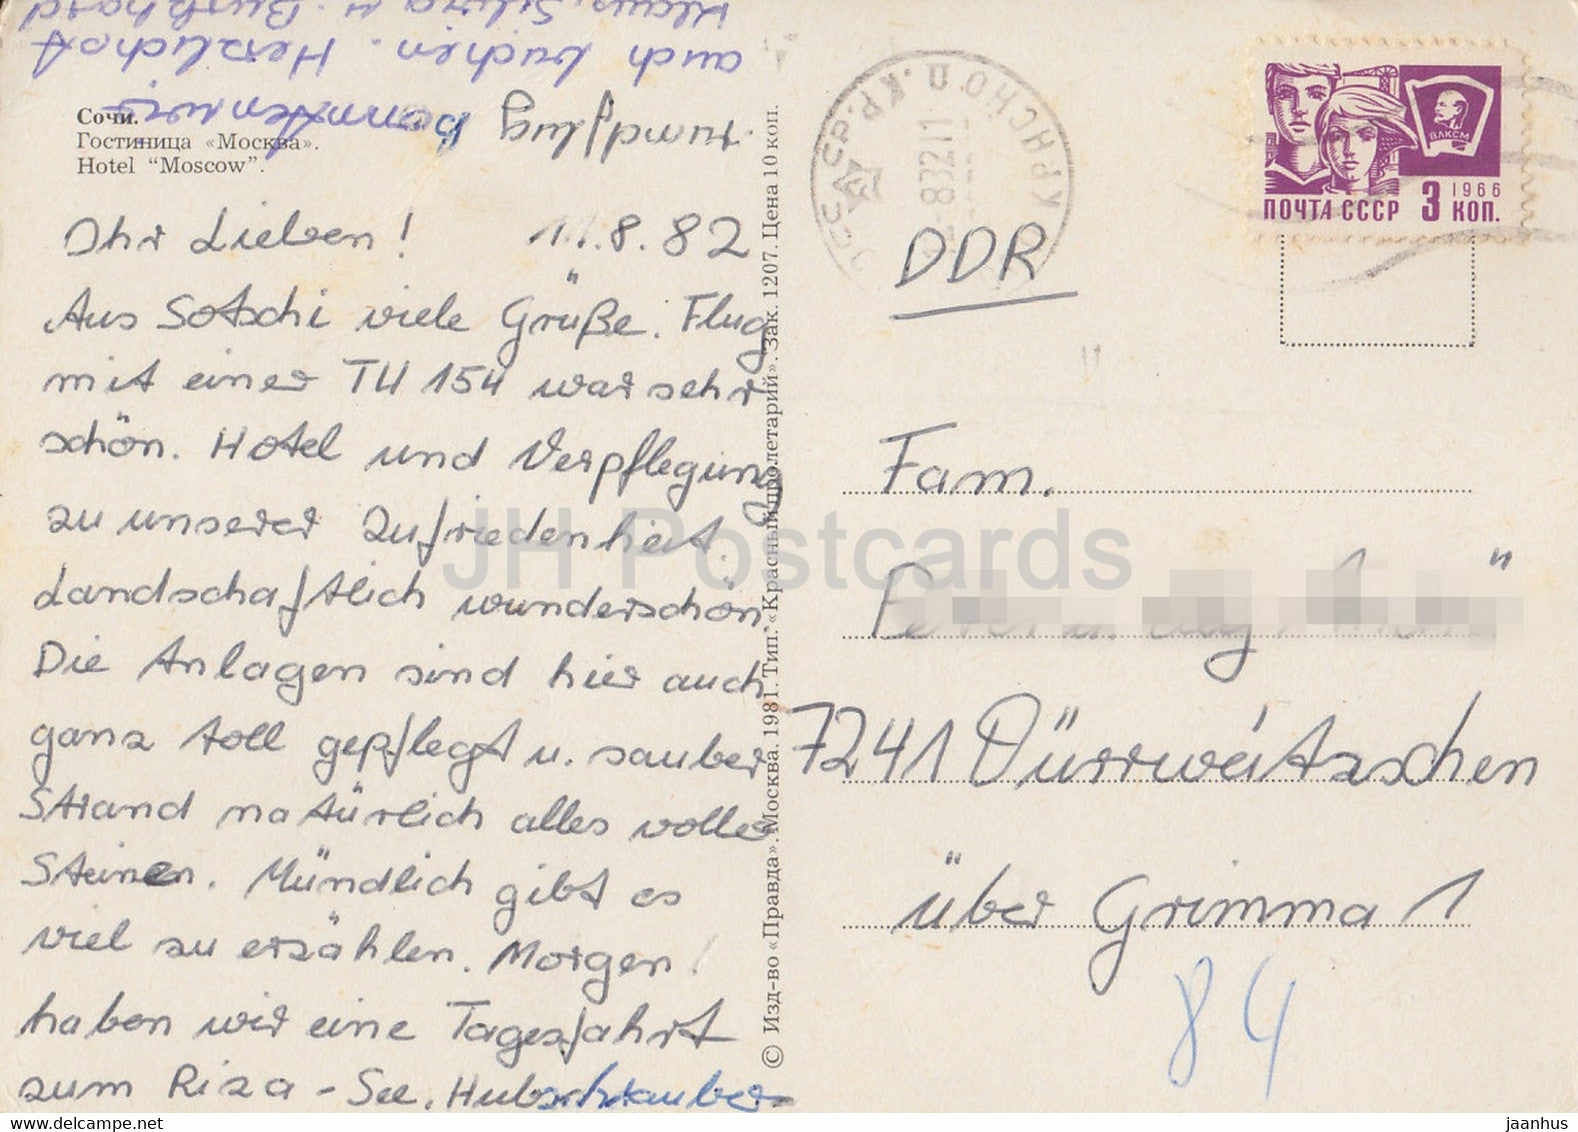 Сочи.
Гостиница «Москва».
Hotel “Moscow”.
Ihr Lieben! 11.8.82
Aus Sotschi viele Grüße. Flug
mit einer TU 154 war sehr
schön. Hotel und Verpflegung
zu unserer Zufriedenheit.
Landschaftlich wunderschön.
Die Anlagen sind hier auch
ganz toll gepflegt u. sauber
Strand natürlich alles voller
Steinen. Mündlich gibt es
viel zu erzählen. Morgen
haben wir eine Tagesfahrt
zum Riza-See. Hubschrauber-
rundflug konnten wir
auch buchen. Herzlichst
Klaus, u. Burkhard
© Изд-во «Правда». Москва. 1981. Тип. «Красный пролетарий». Зак. 1207. Цена 10 коп.
ВЛКСМ
1966
ПОЧТА СССР 3 КОП.
DDR
Fam.
7241 Dürrweitzschen
über Grimma 1
84
JH Postcards
hippostcard.com
jaanhus